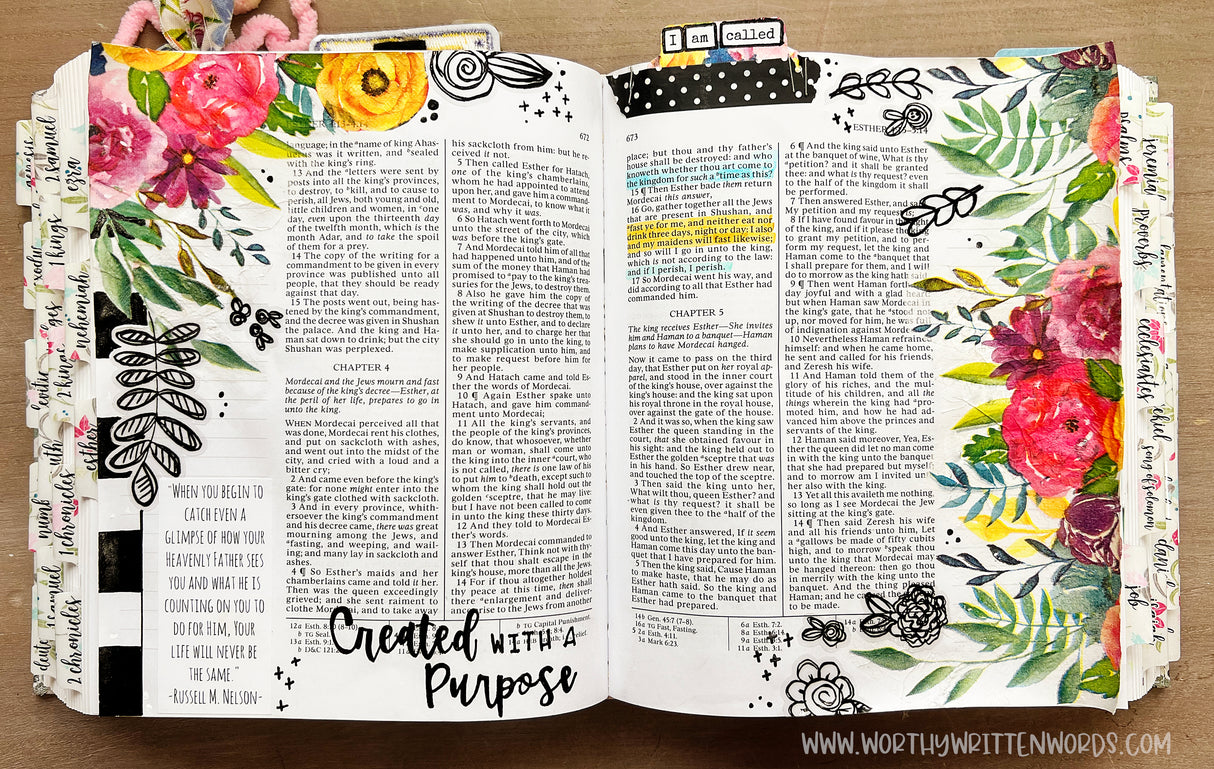 I am called
672
language; in the ªname of king Ahas-
uerus was it written, and ªsealed
with the king's ring.
13 And the ªletters were sent by
posts into all the king's provinces,
to destroy, to ᵇkill, and to cause to
perish, all Jews, both young and old,
little children and women, in ᶜone
day, even upon the thirteenth day
of the twelfth month, which is the
month Adar, and to take the spoil
of them for a prey.
14 The copy of the writing for a
commandment to be given in every
province was published unto all
people, that they should be ready
against that day.
15 The posts went out, being has-
tened by the king's commandment,
and the decree was given in Shushan
the palace. And the king and Ha-
man sat down to drink; but the city
Shushan was perplexed.
CHAPTER 4
Mordecai and the Jews mourn and fast
because of the king's decree—Esther, at
the peril of her life, prepares to go in
unto the king.
WHEN Mordecai perceived all that
was done, Mordecai rent his clothes,
and put on sackcloth with ashes,
and went out into the midst of the
city, and cried with a loud and a
bitter cry;
2 And came even before the king's
gate: for none might enter into the
king's gate clothed with sackcloth.
3 And in every province, whith-
ersoever the king's commandment
and his decree came, there was great
mourning among the Jews, and
ªfasting, and weeping, and wail-
ing; and many lay in sackcloth and
ashes.
4 ¶ So Esther's maids and her
chamberlains came and told it her.
Then was the queen exceedingly
grieved; and she sent raiment to
clothe Mordecai, and to take away
his sackcloth from him: but he re-
ceived it not.
5 Then called Esther for Hatach,
one of the king's chamberlains,
whom he had appointed to attend
upon her, and gave him a command-
ment to Mordecai, to know what it
was, and why it was.
6 So Hatach went forth to Mordecai
unto the street of the city, which
was before the king's gate.
7 And Mordecai told him of all that
had happened unto him, and of the
sum of the money that Haman had
promised to ªpay to the king's trea-
suries for the Jews, to destroy them.
8 Also he gave him the copy of
the writing of the decree that was
given at Shushan to destroy them, to
shew it unto Esther, and to declare
it unto her, and to charge her that
she should go in unto the king, to
make supplication unto him, and
to make request before him for
her people.
9 And Hatach came and told Es-
ther the words of Mordecai.
10 ¶ Again Esther spake unto
Hatach, and gave him command-
ment unto Mordecai;
11 All the king's servants, and
the people of the king's provinces,
do know, that whosoever, whether
man or woman, shall come unto
the king into the inner ªcourt, who
is not called, there is one law of his
to put him to ᵇdeath, except such to
whom the king shall hold out the
golden ᶜsceptre, that he may live:
but I have not been called to come
in unto the king these thirty days.
12 And they told to Mordecai Es-
ther's words.
13 Then Mordecai commanded to
answer Esther, Think not with thy-
self that thou shalt escape in the
king's house, more than all the Jews.
14 For if thou altogether holdest
thy peace at this time, then shall
there ªenlargement and deliver-
ance arise to the Jews from another
Created with a
Purpose
"When you begin to
catch even a
glimpse of how your
Heavenly Father sees
you and what He is
counting on you to
do for Him, your
life will never be
the same."
-Russell M. Nelson-
673
ESTHER
place; but thou and thy father's
house shall be destroyed: and who
knoweth whether thou art come to
the kingdom for such a ᵇtime as this?
15 ¶ Then Esther bade them return
Mordecai this answer,
16 Go, gather together all the Jews
that are present in Shushan, and
ªfast ye for me, and neither eat nor
drink three days, night or day: I also
and my maidens will fast likewise;
and so will I go in unto the king,
which is not according to the law:
and if I perish, I perish.
17 So Mordecai went his way, and
did according to all that Esther had
commanded him.
CHAPTER 5
The king receives Esther—She invites
him and Haman to a banquet—Haman
plans to have Mordecai hanged.
Now it came to pass on the third
day, that Esther put on her royal ap-
parel, and stood in the inner court
of the king's house, over against the
king's house: and the king sat upon
his royal throne in the royal house,
over against the gate of the house.
2 And it was so, when the king saw
Esther the queen standing in the
court, that she obtained favour in
his sight: and the king held out to
Esther the golden ªsceptre that was
in his hand. So Esther drew near,
and touched the top of the sceptre.
3 Then said the king unto her,
What wilt thou, queen Esther? and
what is thy request? it shall be
even given thee to the ªhalf of the
kingdom.
4 And Esther answered, If it seem
good unto the king, let the king and
Haman come this day unto the ban-
quet that I have prepared for him.
5 Then the king said, Cause Haman
to make haste, that he may do as
Esther hath said. So the king and
Haman came to the banquet that
Esther had prepared.
6 ¶ And the king said unto Esther
at the banquet of wine, What is thy
ªpetition? and it shall be granted
thee: and what is thy request? even
to the half of the kingdom it shall
be performed.
7 Then answered Esther, and said,
My petition and my request is;
8 If I have found favour in the sight
of the king, and if it please the king
to grant my petition, and to per-
form my request, let the king and
Haman come to the ªbanquet that
I shall prepare for them, and I will
do to morrow as the king hath said.
9 ¶ Then went Haman forth
day joyful and with a glad heart:
but when Haman saw Mordecai in
the king's gate, that he ªstood not
up, nor moved for him, he was full
of indignation against Mordecai.
10 Nevertheless Haman refrained
himself: and when he came home,
he sent and called for his friends,
and Zeresh his wife.
11 And Haman told them of the
glory of his riches, and the mul-
titude of his children, and all the
things wherein the king had ªpro-
moted him, and how he had ad-
vanced him above the princes and
servants of the king.
12 Haman said moreover, Yea, Es-
ther the queen did let no man come
in with the king unto the banquet
that she had prepared but myself;
and to morrow am I invited unto
her also with the king.
13 Yet all this availeth me nothing,
so long as I see Mordecai the Jew
sitting at the king's gate.
14 ¶ Then said Zeresh his wife
and all his friends unto him, Let
a ªgallows be made of fifty cubits
high, and to morrow ᵇspeak thou
unto the king that Mordecai may
be hanged thereon: then go thou
in merrily with the king unto the
banquet. And the thing pleased
Haman; and he caused the
to be made.
14b Gen. 45:7 (7–8).
16a TG Fast, Fasting.
5 2a Esth. 4:11.
3a Mark 6:23.
6a Esth. 7:2.
8a Esth. 6:14.
11a Esth. 3:1.
2 samuel
ezra
1 kings
nehemiah
2 kings
esther
ruth
1 chronicles
1 samuel
2 chronicles
psalms
jeremiah
proverbs
ecclesiastes
song of solomon
job
WWW.WORTHYWRITTENWORDS.COM